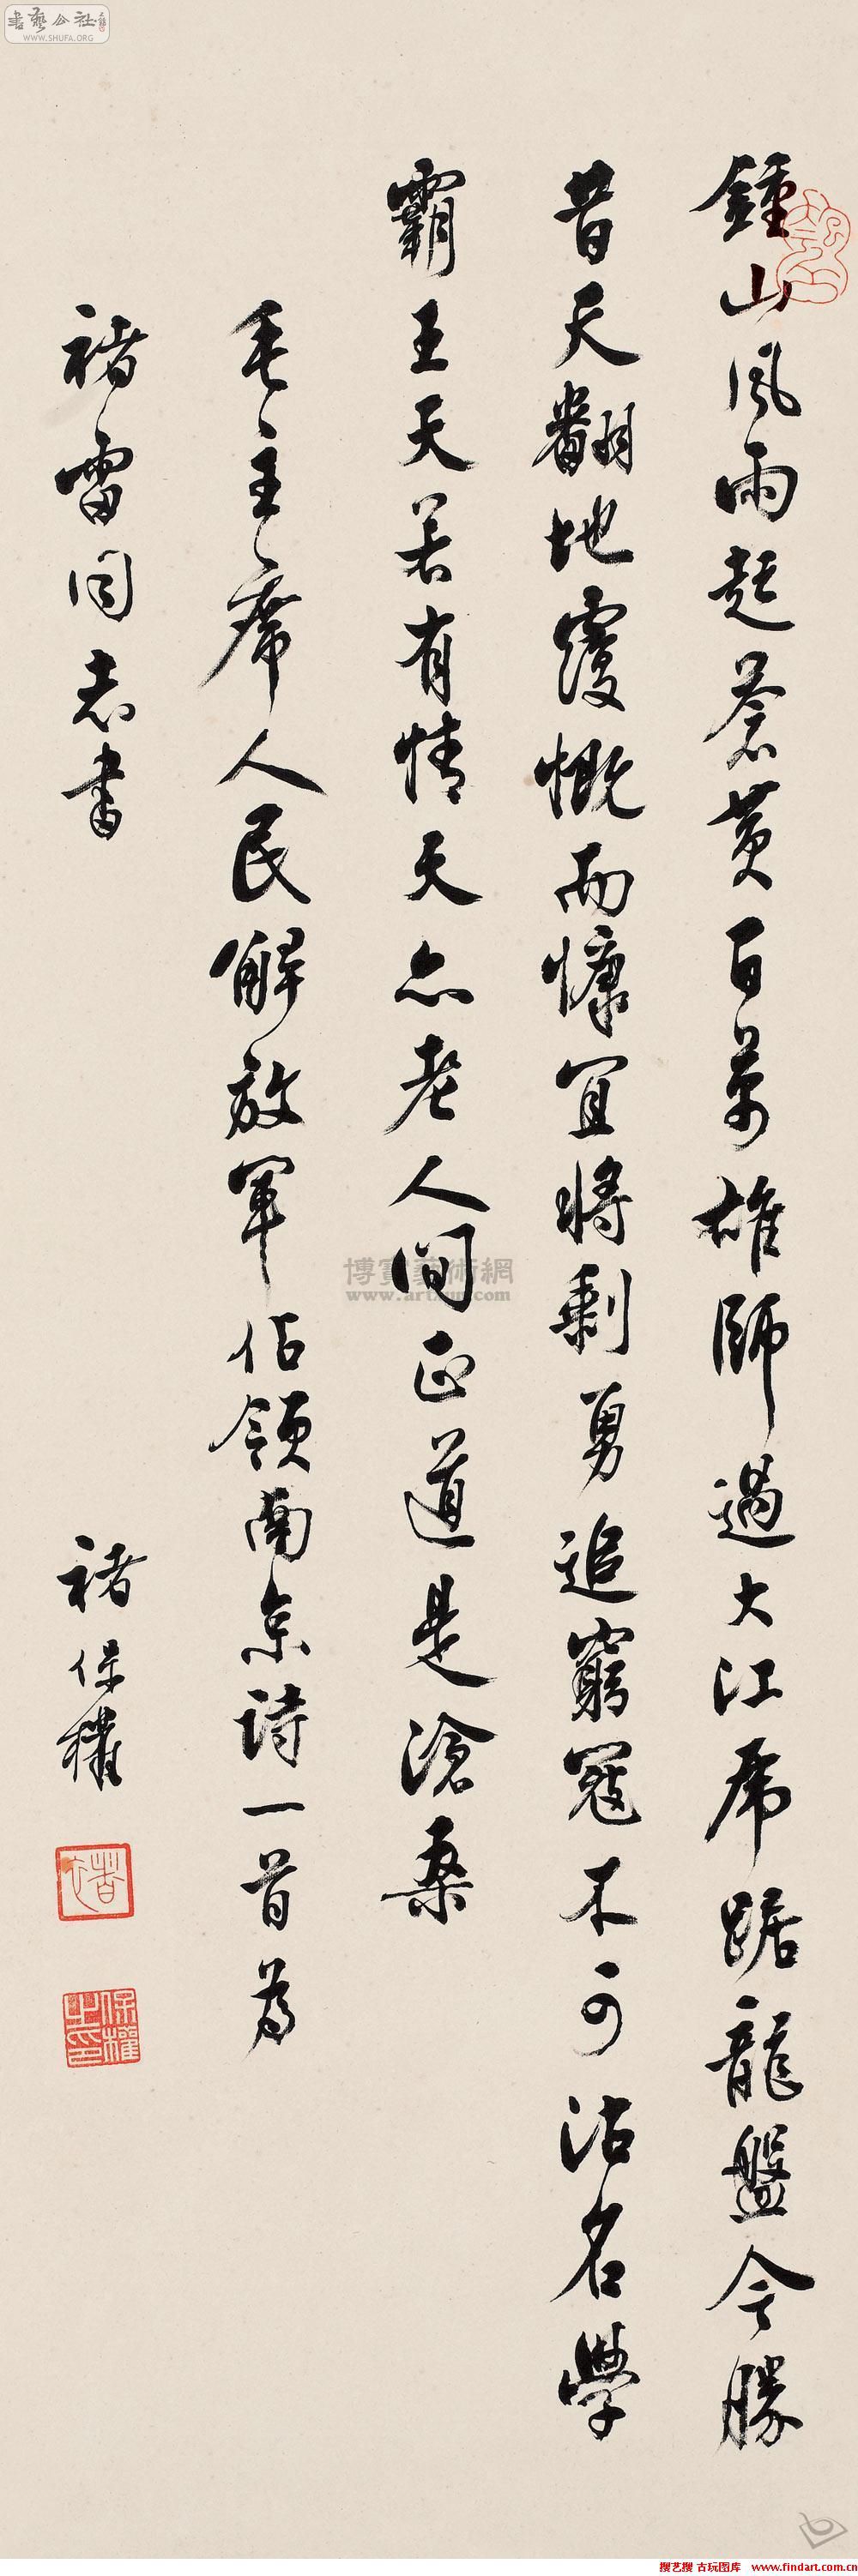 書藝公社
WWW.SHUFA.ORG
鍾山風雨起蒼黃百萬雄師過大江虎踞龍盤今勝
昔天翻地覆慨而慷宜將剩勇追窮寇不可沽名學
霸王天若有情天亦老人間正道是滄桑
毛主席人民解放軍佔領南京詩一首為
褚雷同志書
褚保權
保權之印
博寶藝術網
www.artxun.com
搜艺搜 古玩图库 www.findart.com.cn